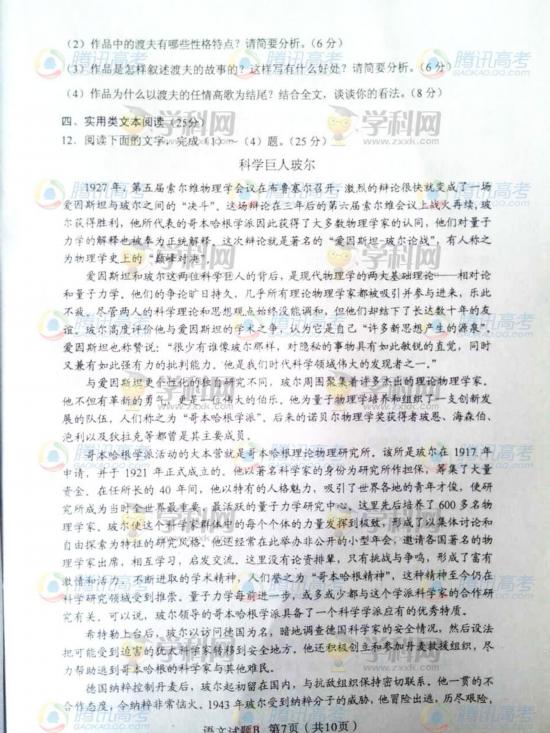 (2)作品中的渡夫有哪些性格特点?请简要分析。(6分)
(3)作品是怎样叙述渡夫的故事的?这样写有什么好处?请简要分析。(6分)
(4)作品为什么以渡夫的任情高歌为结尾?结合全文,谈谈你的看法。(8分)
四、实用类文本阅读(25分)
12.阅读下面的文字,完成(1)~(4)题。(25分)
科学巨人玻尔
1927年,第五届索尔维物理学会议在布鲁塞尔召开,激烈的辩论很快就变成了一场
爱因斯坦与玻尔之间的“决斗”。这场辩论在三年后的第六届索尔维会议上战火再续,玻
尔获得胜利,他所代表的哥本哈根学派因此获得了大多数物理学家的认同,他们对量子
力学的解释也被奉为正统解释。这次辩论就是著名的“爱因斯坦-玻尔论战”,有人称之
为物理学史上的“巅峰对决”。
爱因斯坦和玻尔这两位科学巨人的背后,是现代物理学的两大基础理论——相对论
和量子力学。他们的争论旷日持久,几乎所有理论物理学家都被吸引并参与进来,乐此
不疲。尽管两人的科学理论和思想观点始终没能调和,但他们却结下了长达数十年的友
谊。玻尔高度评价他与爱因斯坦的学术之争,认为它是自己“许多新思想产生的源泉”。
爱因斯坦也称赞说:“很少有谁像玻尔那样,对隐秘的事物具有如此敏锐的直觉,同时
又兼有如此强有力的批判能力。他是我们时代科学领域伟大的发现者之一。”
与爱因斯坦更个性化的独自研究不同,玻尔周围聚集着许多杰出的理论物理学家。
他不但有革新的勇气,更是一位伟大的伯乐。他为量子物理学培养和组织了一支创新发
展的队伍,人们称之为“哥本哈根学派”。后来的诺贝尔物理学奖获得者玻恩、海森伯、
泡利以及狄拉克等都曾是其主要成员。
哥本哈根学派活动的大本营就是哥本哈根理论物理研究所。该所是玻尔在1917年
申请,并于1921年正式成立的。他以著名科学家的身份为研究所作担保,筹集了大量
资金。在任所长的40年间,他以特有的人格魅力,吸引了世界各地的青年才俊,使研
究所成为当时全世界最重要、最活跃的量子力学研究中心。这里先后培养了600多名物
理学家。玻尔使这个科学家群体中的每个个体的力量发挥到极致,形成了以集体讨论和
自由探索为特征的研究风格。他还经常在此举办非公开的小型年会,邀请各国著名的物
理学家出席,相互学习,启发交流。这里没有论资排辈,只有挑战与争鸣,形成了富有
激情和活力、不断进取的学术精神,人们誉之为“哥本哈根精神”,这种精神至今仍在
科学研究领域受到推崇。量子力学每前进一步,或多或少都与这个学派科学家的合作研
究有关。可以说,玻尔领导的哥本哈根学派具备了一个科学学派应有的优秀特质。
希特勒上台后,玻尔以访问德国为名,暗地调查德国科学家的安全情况,然后设法
把可能受到迫害的犹太科学家转移到安全地方。他还积极创立和参加丹麦救援组织,尽
力帮助逃到哥本哈根的科学家与其他难民。
德国纳粹控制丹麦后,玻尔起初留在国内,与抗敌组织保持密切联系。他一贯的不
合作态度,令纳粹非常恼火。1943年玻尔受到纳粹分子的威胁,他冒险出逃,历尽艰险,
语文试题B 第7页(共10页)
腾讯高考
GAOKAO.QQ.COM
学科网
www.zxxk.com